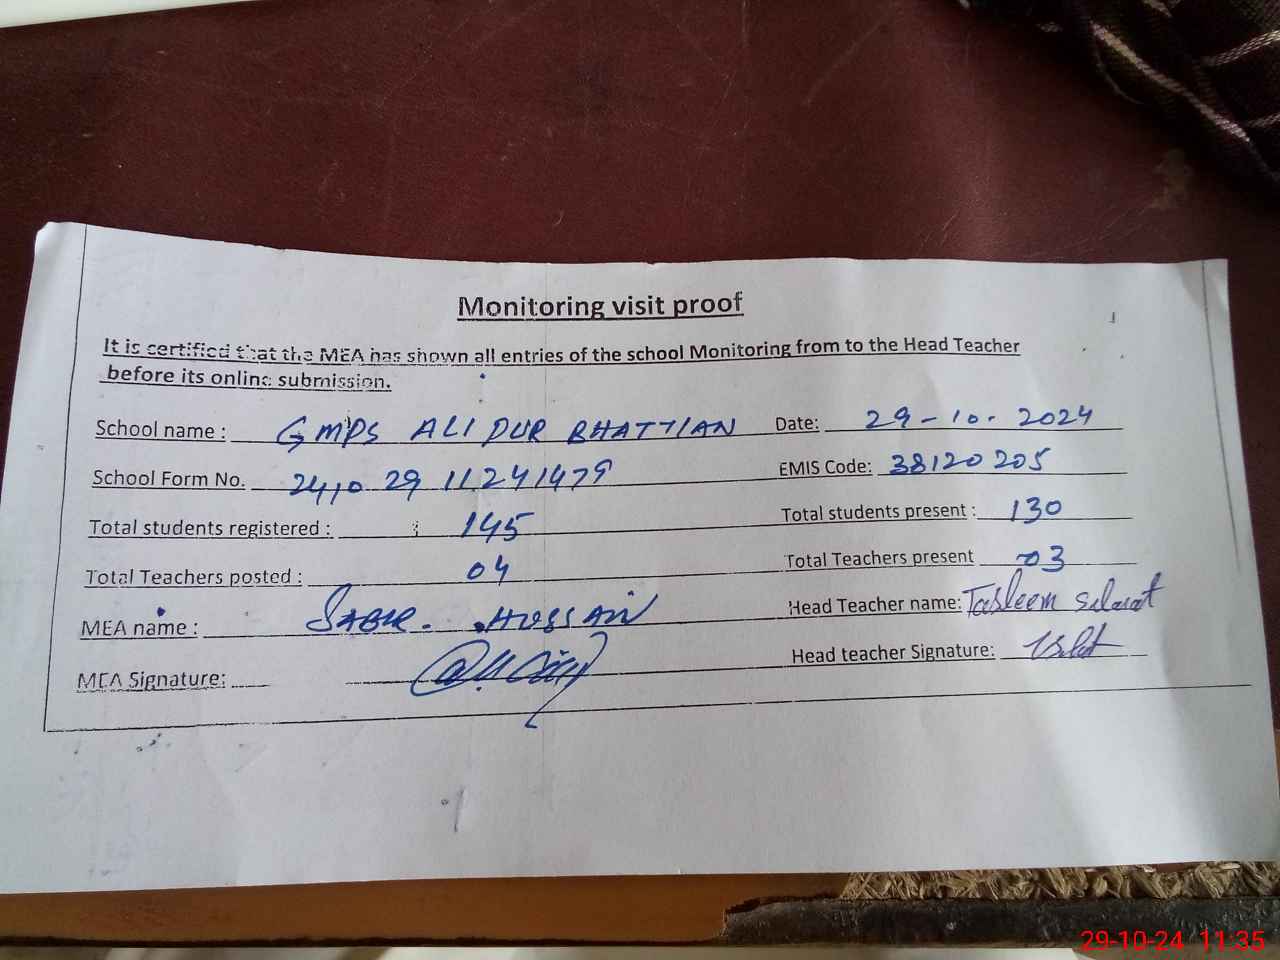 Monitoring visit proof
It is certified that the MEA has shown all entries of the school Monitoring from to the Head Teacher
before its online submission.
School name : GMPS ALI PUR BHATTIAN Date: 29-10-2024
School Form No. 24102911241479 EMIS Code: 38120205
Total students registered : 145 Total students present : 130
Total Teachers posted : 04 Total Teachers present 03
MEA name : SABIR HUSSAIN Head Teacher name: Tasleem
MEA Signature: Head teacher Signature:
29-10-24 11:35